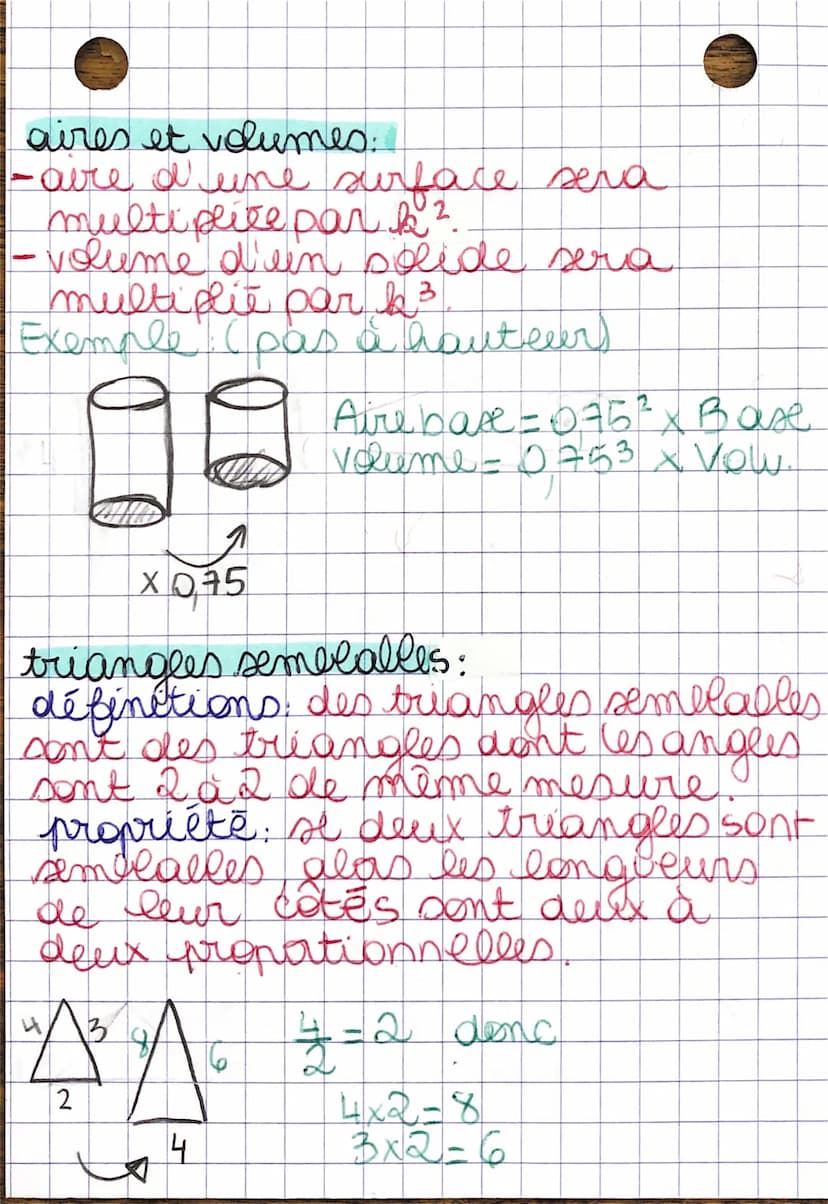 aires et volumes:
- aire d'une surface sera
multipliée par k².
- volume d'un solide sera
multiplié par k³.
Exemple: (pas à hauteur)
Aire base = 0,75² x Base
volume = 0,753 x Volu.
x 0,75
triangles semblables:
définitions: des triangles semblables
sont des triangles dont les angles
sont 2 à 2 de même mesure.
propriété: si deux triangles sont
semblables, alos les longueurs
de leur côtés sont deux à
deux propationnelles.
4 3 8 6 4/2 = 2 donc
2 4x2=8
4 3x2=6